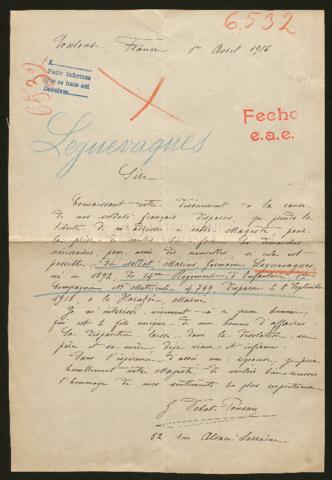 6532
Toulouse, France 1er Avril 1916
6532
Pelit informes
que se hace est
Fecho
e.a.e.
Leguevaques
Sire,
Connaissant votre dévouement à la cause
de nos soldats français disparus, je prends la
liberté de m'adresser à votre Majesté, pour
la prier de vouloir bien faire les démarches
nécessaires, pour avoir des nouvelles si cela est
possible, du soldat Germain Leguevaques,
né en 1892 du 14me Régiment d'Infanterie
Compagnie No Matricule 4.799 disparu le 8 Septembre
à la Marne
Je m'intéresse vivement à ce jeune homme,
qui est le fils unique de mon homme d'affaires
Sa disparition laisse dans la désolation, son
père et sa mère, déjà vieux et infirmes.
Dans l'espérance d'avoir une réponse, je prie
humblement votre Majesté de vouloir bien recevoir
l'hommage de mes sentiments les plus respectueux
J. Debat-Ponsan
52 rue Alsace Lorraine